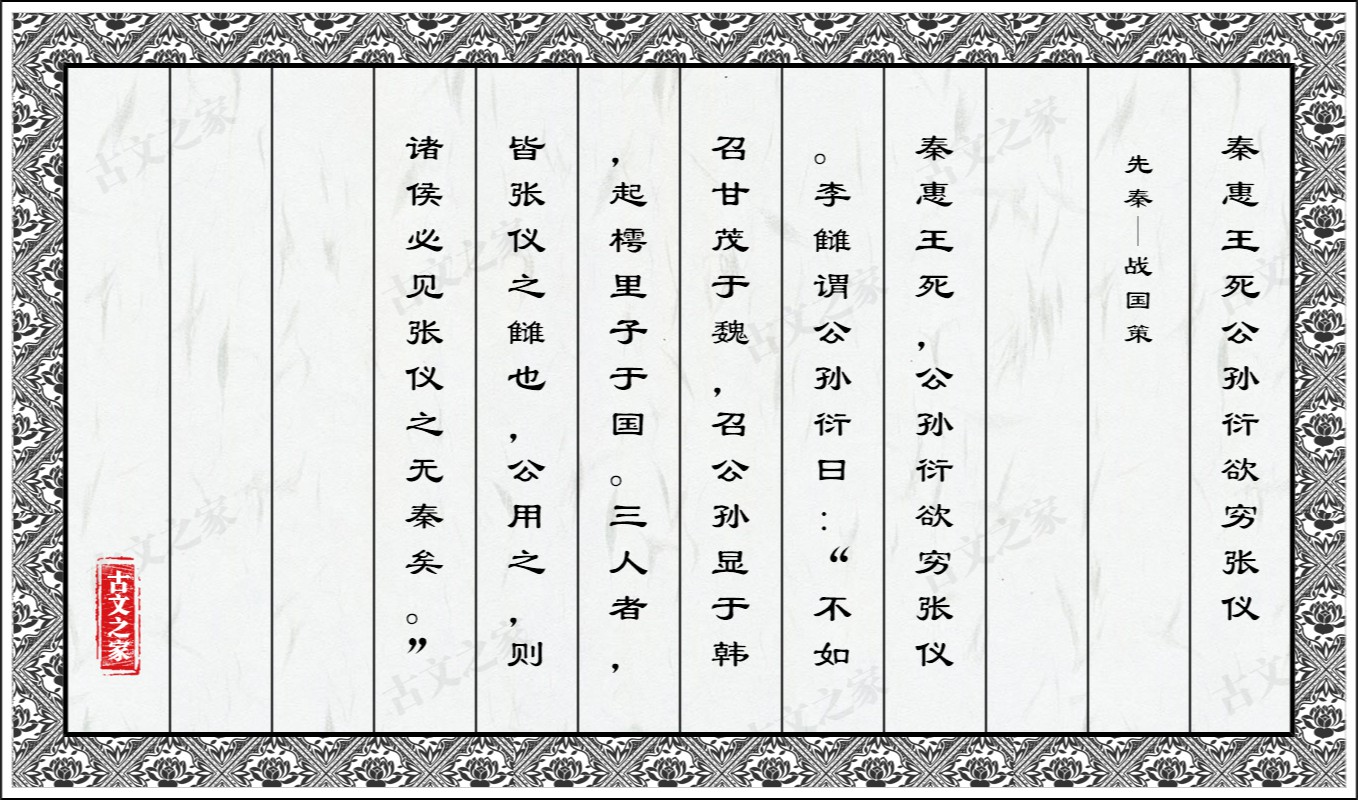 秦惠王死公孙衍欲穷张仪
先秦—战国策
秦惠王死,公孙衍欲穷张仪
。李雠谓公孙衍曰:“不如
召甘茂于魏,召公孙显于韩
,起樗里子于国。三人者,
皆张仪之雠也,公用之,则
诸侯必见张仪之无秦矣。”
古文之家